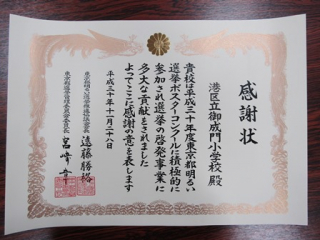 感謝状
港区立御成門小学校 殿
貴校は平成三十年度東京都明るい
選挙ポスターコンクールに積極的に
参加され選挙の啓発事業に
多大な貢献をされました
よってここに感謝の意を表します
平成三十年十一月二十八日
東京都明るい選挙推進協議会会長 遠藤勝裕
東京都選挙管理委員会委員長 宮崎章